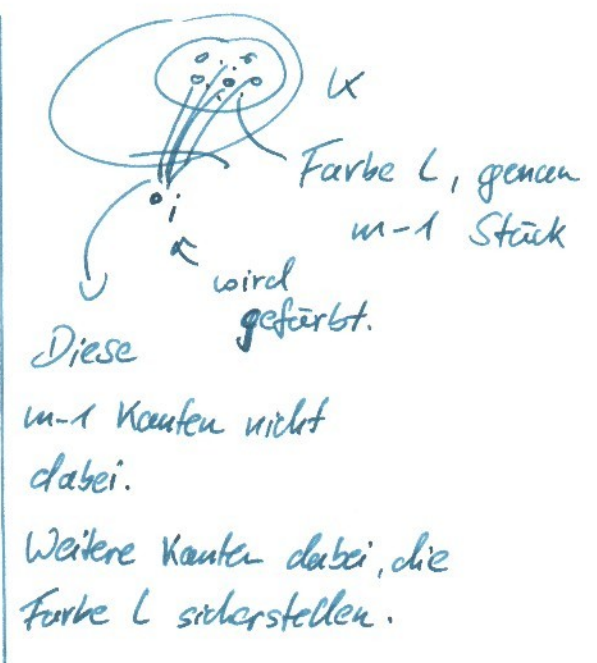 K
Farbe L, genau
m-1 Stück
i
wird
gefärbt.
Diese
m-1 Kanten nicht
dabei.
Weitere Kanten dabei, die
Farbe L sicherstellen.